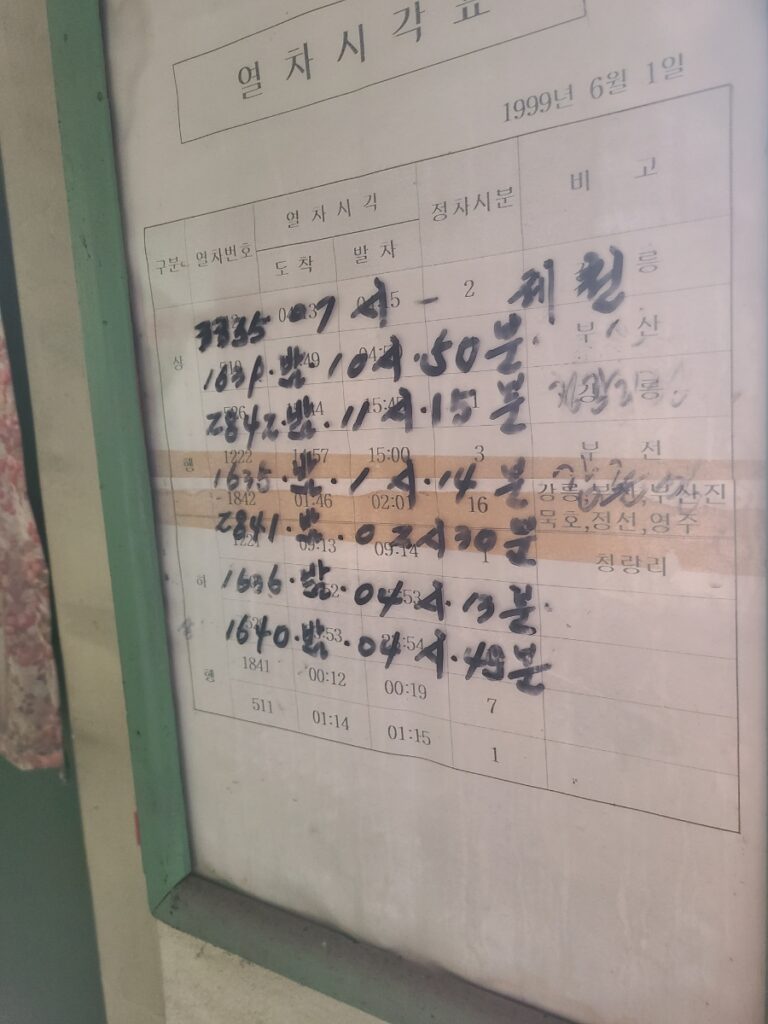 열 차 시 각 표
1999년 6월 1일
구분 열차번호 열 차 시 각 정차시분 비 고
도 착 발 차
릉
3335 07 시 - 제 천
2
상
부 산
1639. 밤. 10시. 50분.
2842. 밤. 11시. 15분
1222 15:00 3 부 전
행
1635. 밤. 1시. 14분
1842 01:46 02:01 16 강릉,부전,부산진
묵호,정선,영주
2841. 밤. 02시30분
1221 09:13 09:14 1 청량리
하
1636. 밤. 04시. 13분.
1640. 밤. 04시. 49분
행
1841 00:12 00:19 7
511 01:14 01:15 1